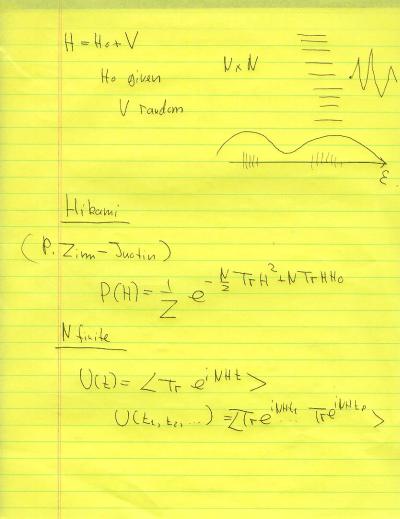 H = H₀ + V
H₀ given
N x N
V random
ε
Hikami
(P. Zinn-Justin)
P(H) = 1/Z e^{-N/2 Tr H² + N Tr H H₀}
N finite
U(t) = < Tr e^{iNHt} >
U(t₁, t₂, ...) = < Tr e^{iNHt₁} ... Tr e^{iNHtₚ} >